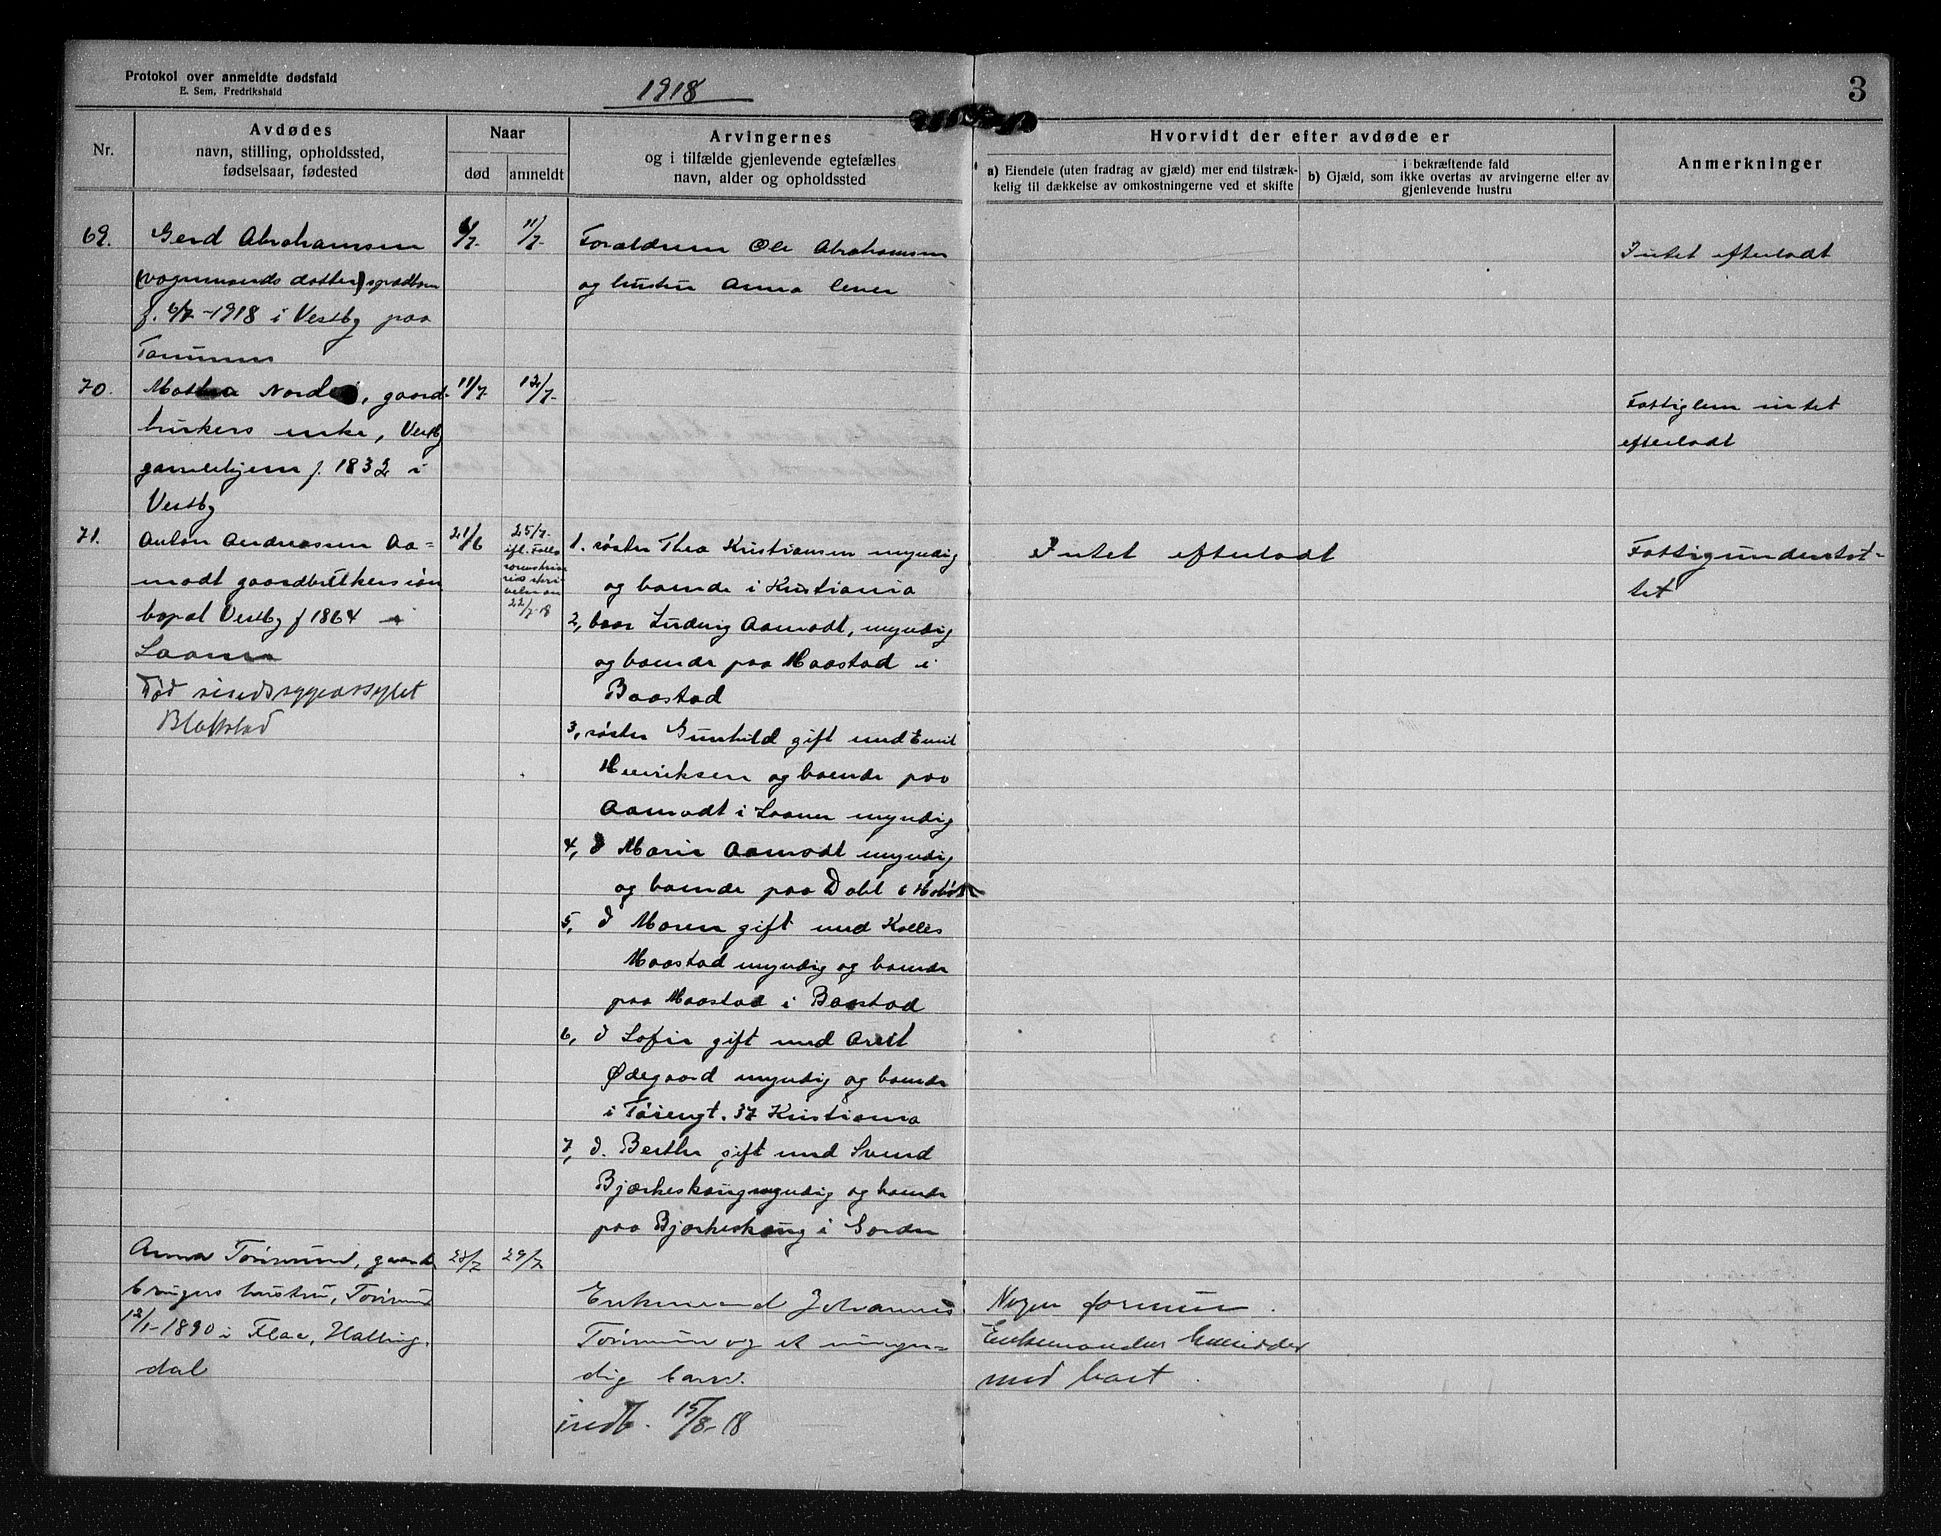 Protokol over anmeldte dødsfald
E. Sem, Fredrikshald
1918
3
Nr.
Avdødes
navn, stilling, opholdssted,
fødselsaar, fødested
Naar
død
anmeldt
Arvingernes
og i tilfælde gjenlevende egtefælles
navn, alder og opholdssted
Hvorvidt der efter avdøde er
a) Eiendele (uten fradrag av gjæld) mer end tilstræk-
kelig til dækkelse av omkostningerne ved et skifte
i bekræftende fald
b) Gjæld, som ikke overtas av arvingerne eller av
gjenlevende hustru
Anmerkninger
69.
Gerd Abrahamsen
(vognmands datter) spædbarn
f. 6/7-1918 i Vestby paa
6/7-
11/7-
Forældrene Ole Abrahamsen
og hustru Anna
Intet efterladt
70.
Nordby, gaard-
brukers enke, Vestby
gamlehjem f. 1832 i
Vestby
11/7-
12/7-
Fattiglem intet
efterladt
71.
Anton Andreassen Aa=
modt gaardbrukersøn
bopæl Vestby f 1864 i
Saaner
Død sindssygeassylet
Blakstad
21/6
25/7-
ifl. Follo
sorenskri
veri skri
velse av
22/7-18
1. søster Thea Kristiansen myndig
og boende i Kristiania
2, bror Ludvig Aamodt, myndig
og boende paa Haastad i
Baastad
3, søster Gunhild gift med Emil
Henriksen og boende paa
Aamodt i Saaner myndig
4, d Marie Aamodt myndig
og boende paa Dahl i Hobøl
5, d Maren gift med Kolles
Haastad myndig og boende
paa Haastad i Baastad
6, d Sofie gift med Arnt
Ødegaard myndig og boende
i Tøiengt. 37 Kristiania
7, d. Berthe gift med Svend
Bjørkeskaug myndig og boende
paa Bjørkeskaug i Garder
Intet efterladt
Fattigunderstøt=
tet
Anna Torsrund, gaard
brugers hustru, Torsrund
12/1-1890 i Flaa, Halling-
dal
28/7
29/7
Enkemand Johannes
Torsrund og et umyn=
dig barn.
indb. 15/8-18
Nogen formue.
Enkemanden hensidder
med boet.